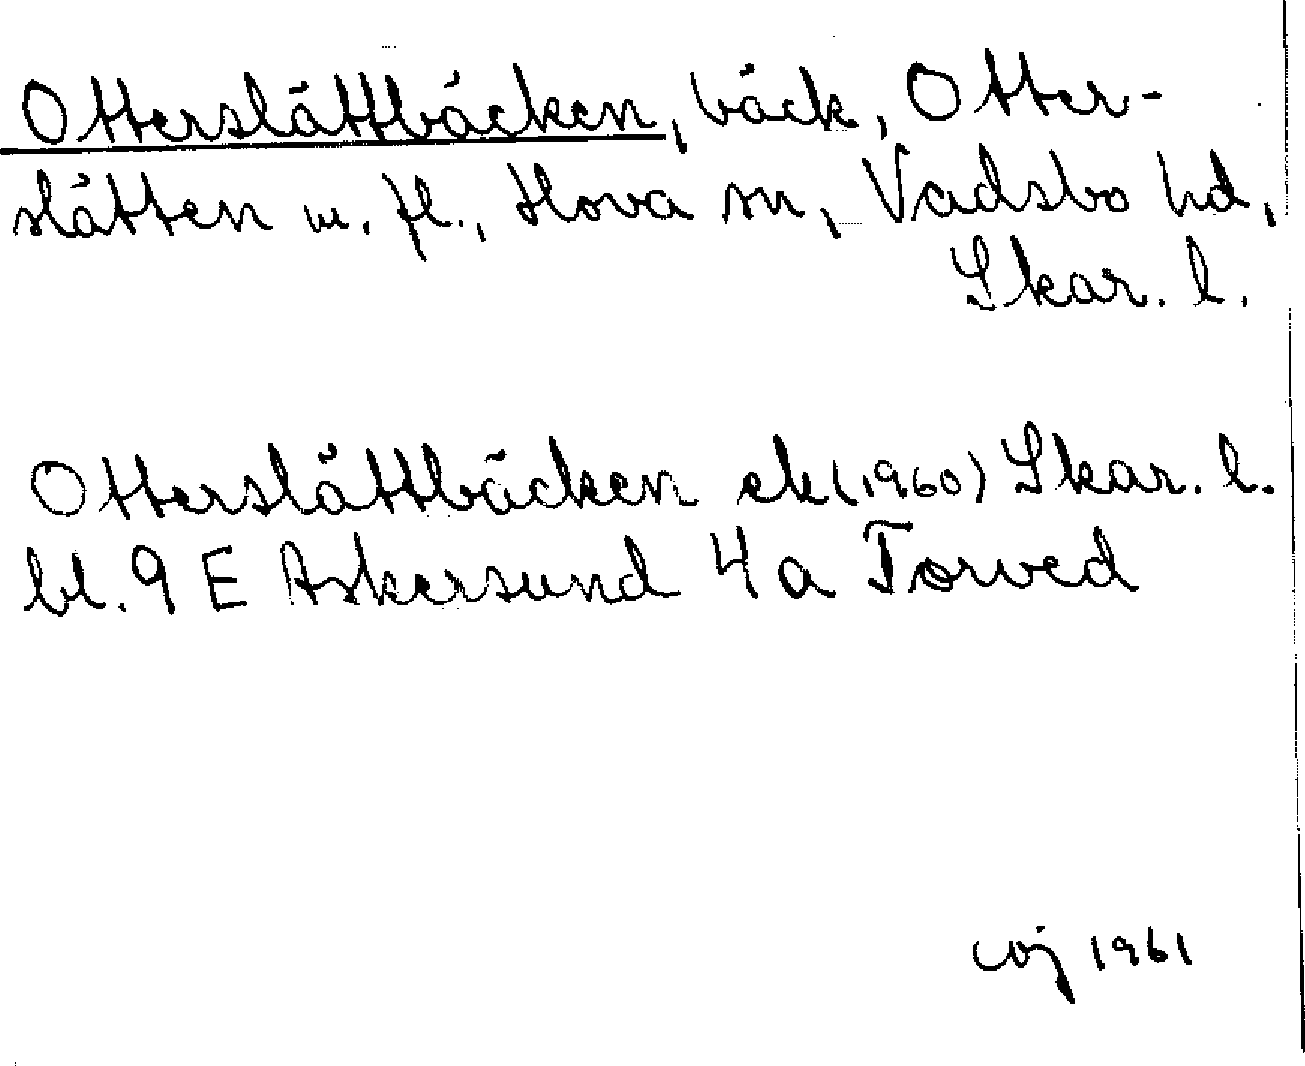 Otterslättbäcken, bäck, Otter-
slätten m. fl., Hova sn, Vadsbo hd,
Skar. l.
Otterslättbäcken ek (1960) Skar. l.
bl. 9 E Askersund 4 a Torved
1961